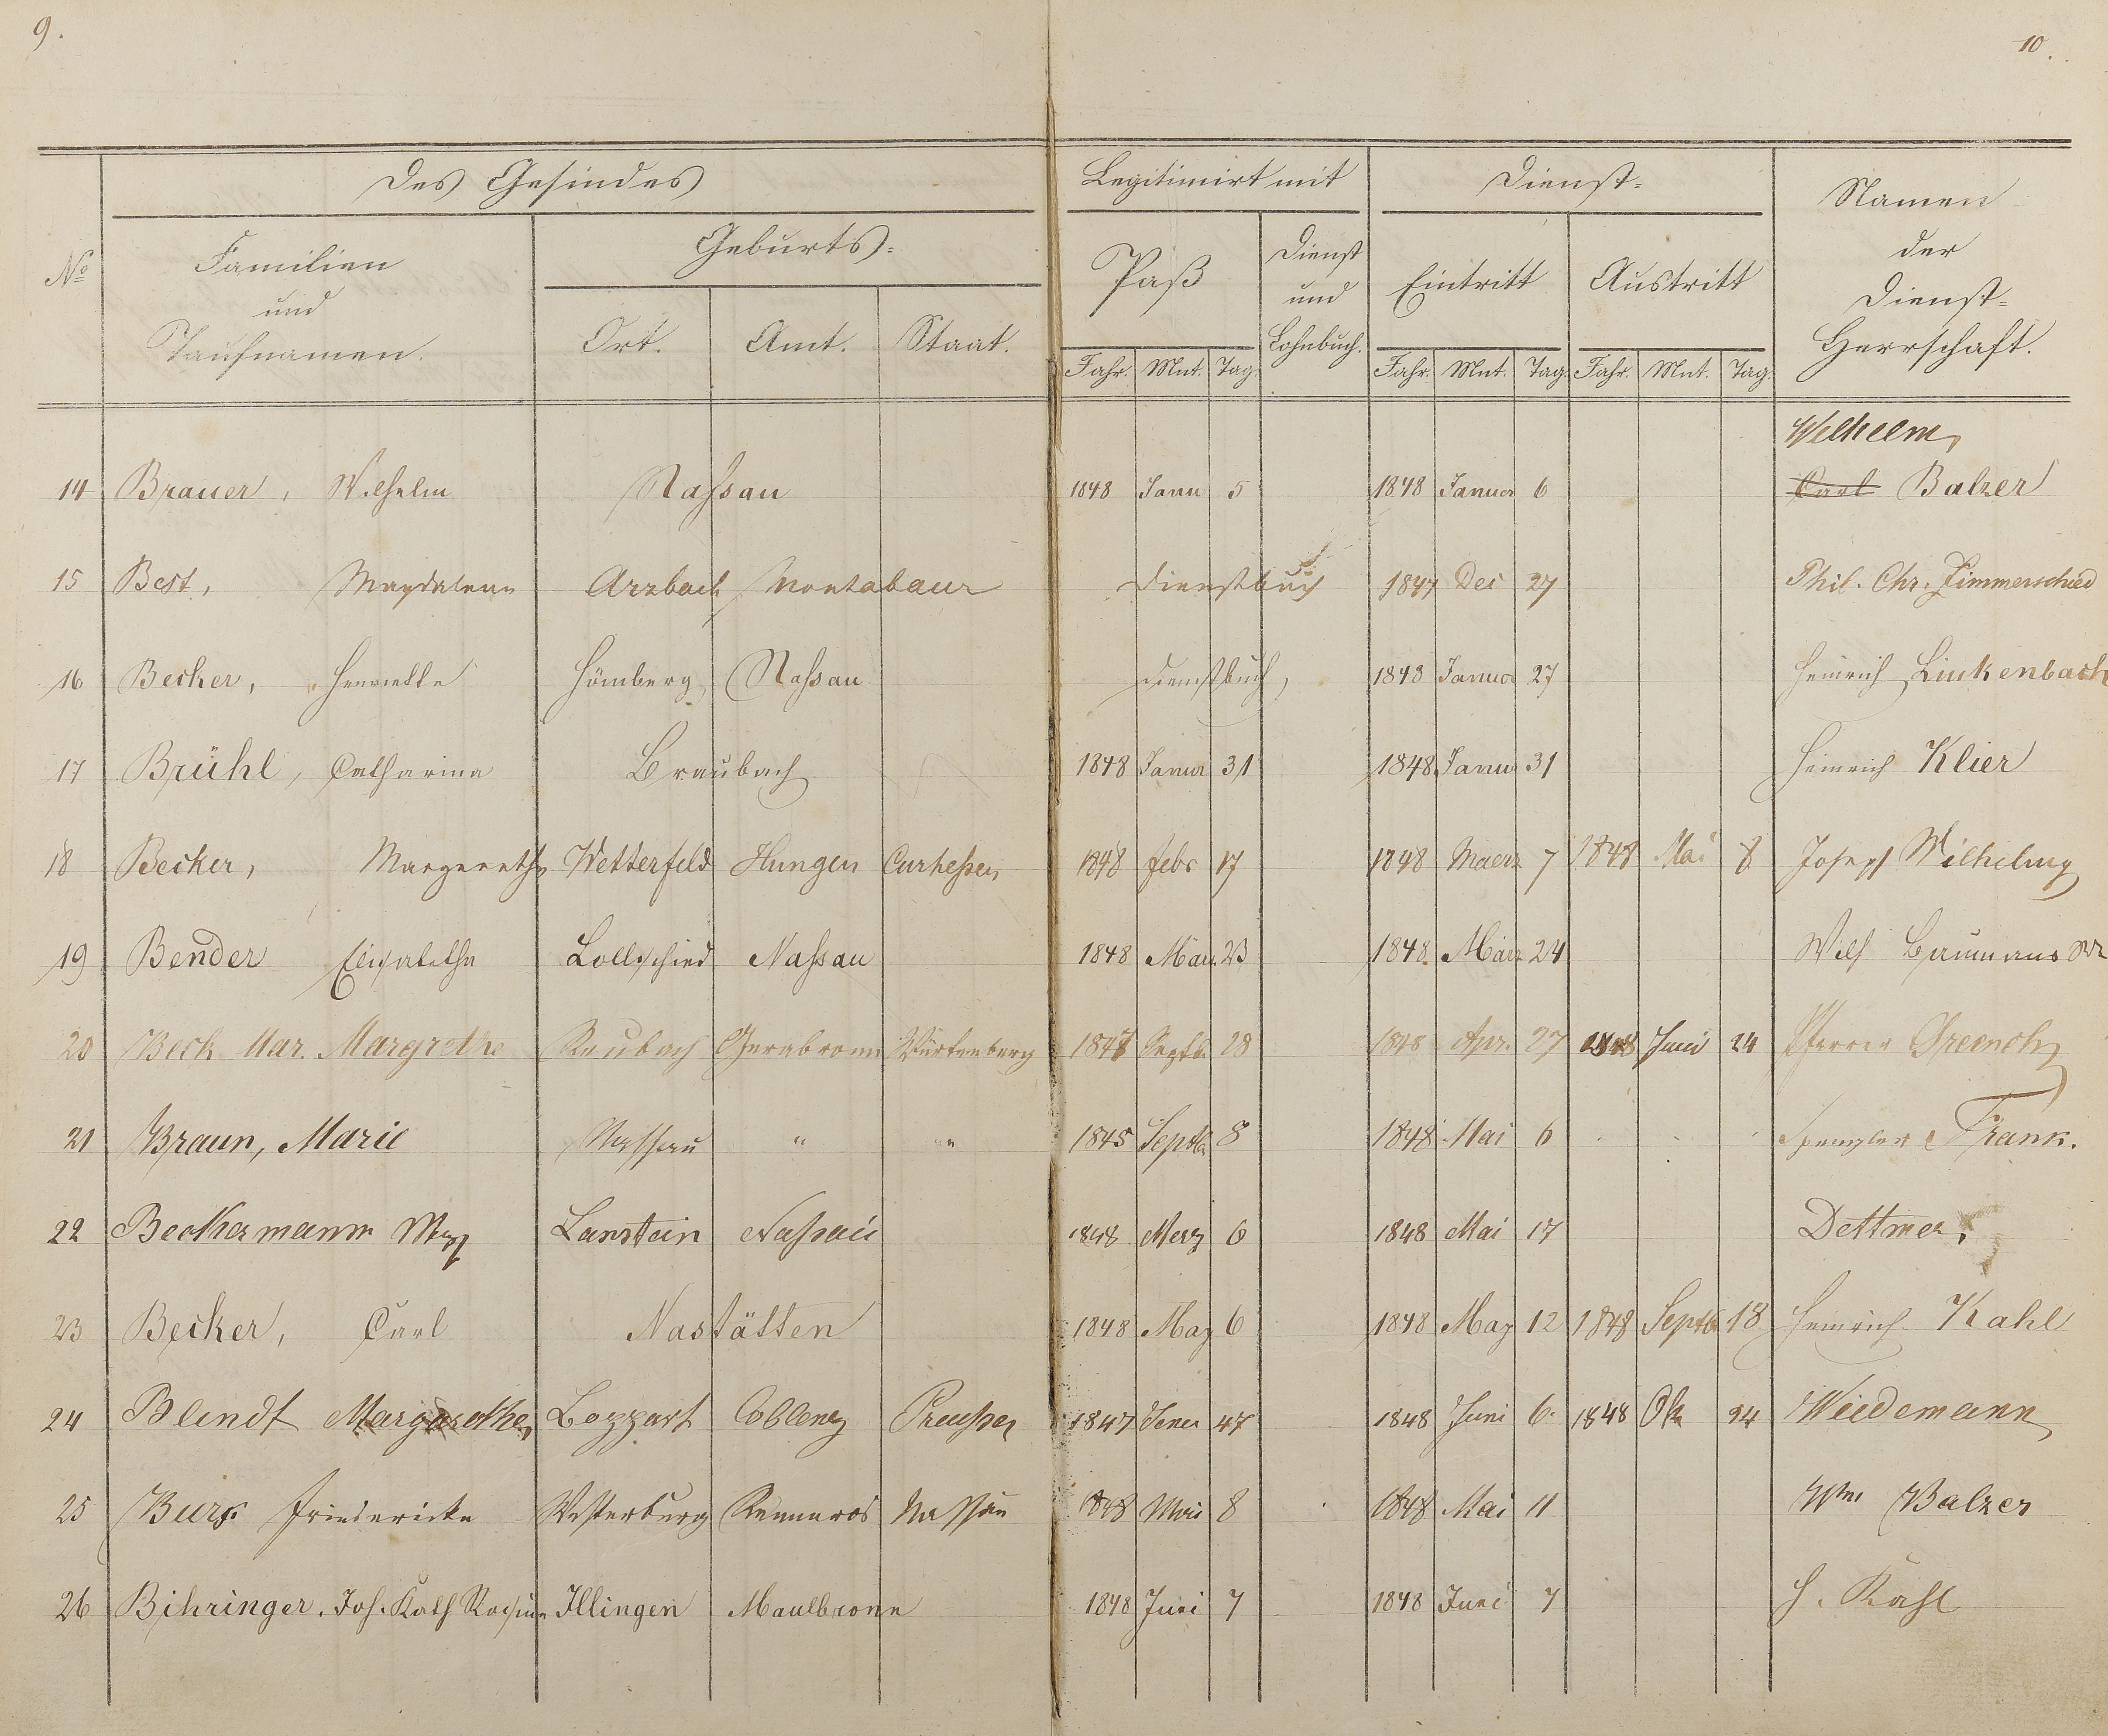 9.
10.
Des Gesindes
Legitimirt mit
Dienst-
Namen
der
Dienst-
Herrschaft.
No
Familien
und
Taufnamen.
Geburts-
Ort. Amt. Staat.
Paß
Dienst
und
Lohnbuch.
Eintritt
Austritt
Jahr. Mnt. Tag.
Jahr. Mnt. Tag. Jahr. Mnt. Tag.
Wilhelm
14 Brauer, Wilhelm Naßau 1848 Janu 5 1848 Januar 6 Carl Balzer
15 Best, Magdalena Arzbach Montabaur Dienstbuch 1847 Dec 27 Phil. Chr. Zimmerschied
16 Becker, Henriette Hömberg Naßau Dienstbuch, 1848 Januar 27 Heinrich Linkenbach
17 Brühl, Catharina Braubach 1848 Januar 31 1848 Januar 31 Heinrich Klier
18 Becker, Margaretha Wetterfeld Hungen Curheßen 1848 Febr 17 1848 Maerz 7 1848 Mai 8 Joseph
19 Bender Elisabetha Lollschied Naßau 1848 März 23 1848 März 24 Wilh Baumans
20 Beck Mar. Margrethe Raubach Gerabronn Würtenberg 1847 Septb. 28 1848 Apr. 27 1848 Juni 24 Pfarrer
21 Braun, Marie Nassau " " 1845 Septb 8 1848 Mai 6 Spengler Frank.
22 Beckermann Lanstein Naßau 1848 Merz 6 1848 Mai 17 Dettmer.
23 Becker, Carl Nastätten 1848 May 6 1848 May 12 1848 Septb 18 Heinrich Kahl
24 Blindt Margarethe Boppart Coblenz Preußen 1847 1848 Juni 6. 1848 Ok 24 Wiedemann
25 Friedericke Westerburg Rennerod Nassau 1848 Mai 8 1848 Mai 11 Wm Balzer
26 Bihringer. Joh. Kath Rosine Illingen Maulbronn 1848 Juni 7 1848 Juni 7 H. Kahl